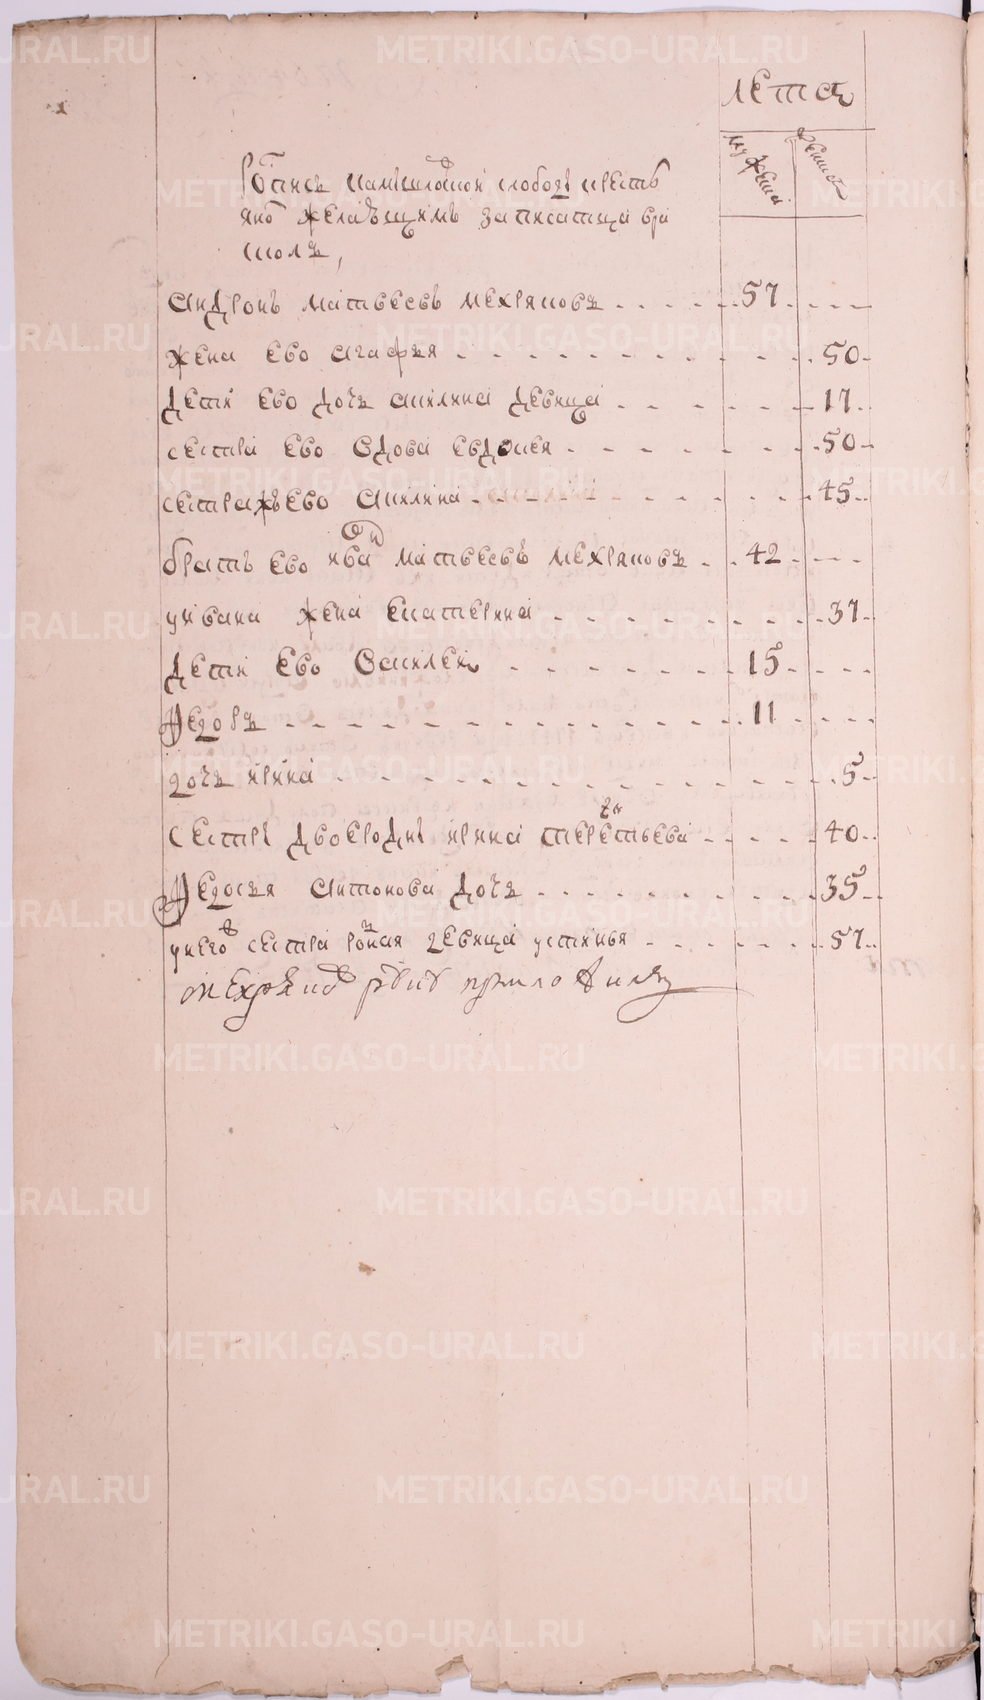 лета
мужеска
женска
Роспись камышловской слободы крестьян
яно желающимъ записатца в ра
сколъ,
Андронъ Матвеевъ Мехряковъ 57
жена ево Агафья 50
дети ево дочь Акилина девица 17
сестра ево вдова Евдокея 50
сестражъ ево Акилина 45
братъ ево Иван Матвеевъ Мехряковъ 42
у Ивана жена Екатерина 37
дети ево Василеи 15
Федоръ 11
дочь Ирина 5
сестры двоеродны Ирина Терентьева 40
Федосья Антонова дочь 35
у него сестра родная девица Устинья 57
METRIKI.GASO-URAL.RU